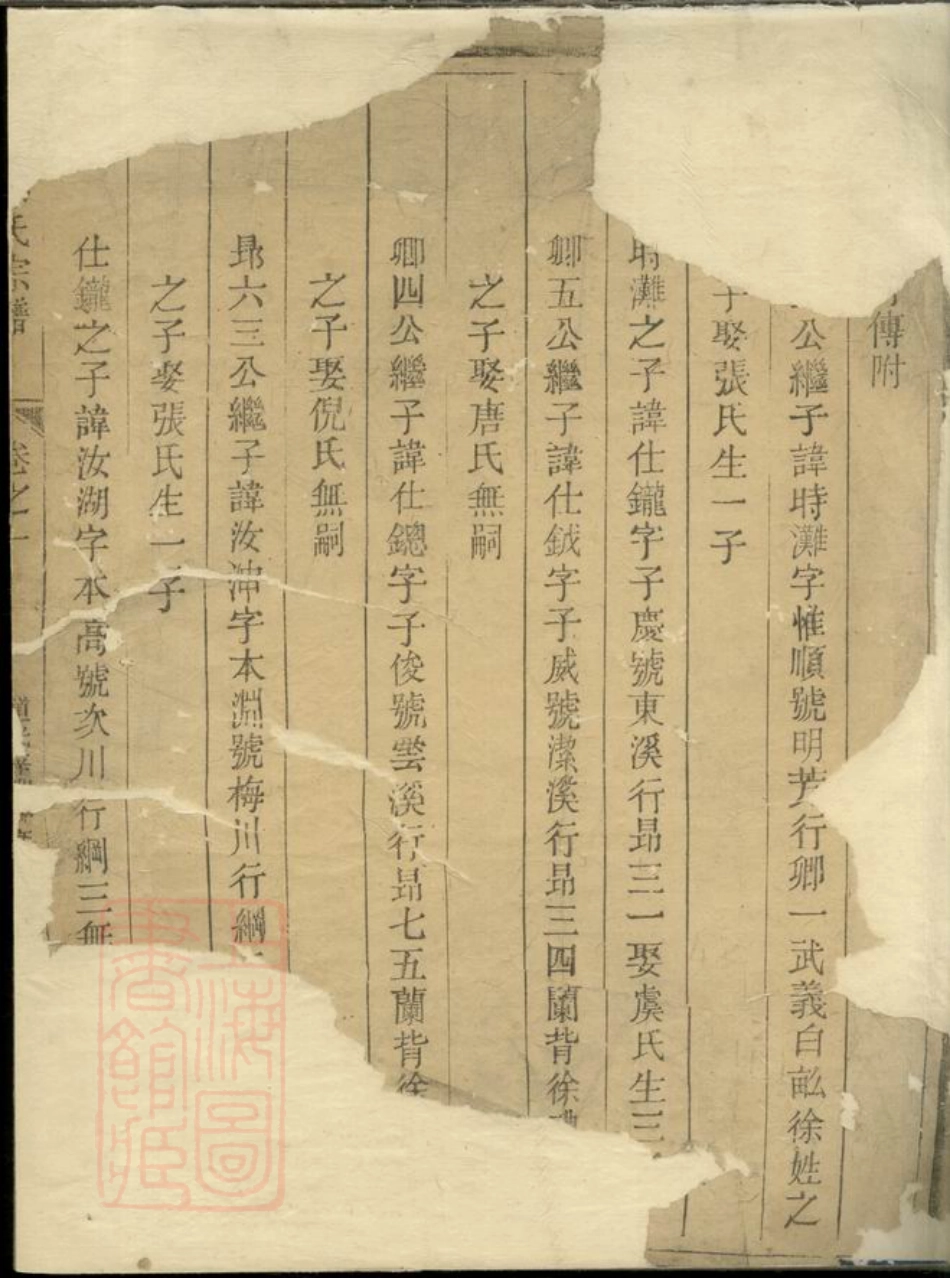 傳附
公繼子諱時灘字惟順號明芳行卿一武義白畝徐姓之
子娶張氏生一子
時灘之子諱仕鑨字子慶號東溪行昂三一娶虞氏生三
卿五公繼子諱仕鉞字子威號潔溪行昂三四蘭背徐
之子娶唐氏無嗣
卿四公繼子諱仕鏓字子俊號雲溪行昂七五蘭背徐
之子娶倪氏無嗣
昂六三公繼子諱汝沖字本淵號梅川行綱
之子娶張氏生一子
仕鑨之子諱汝湖字本高號次川行綱三無
氏宗譜 卷之一
上海圖書館藏